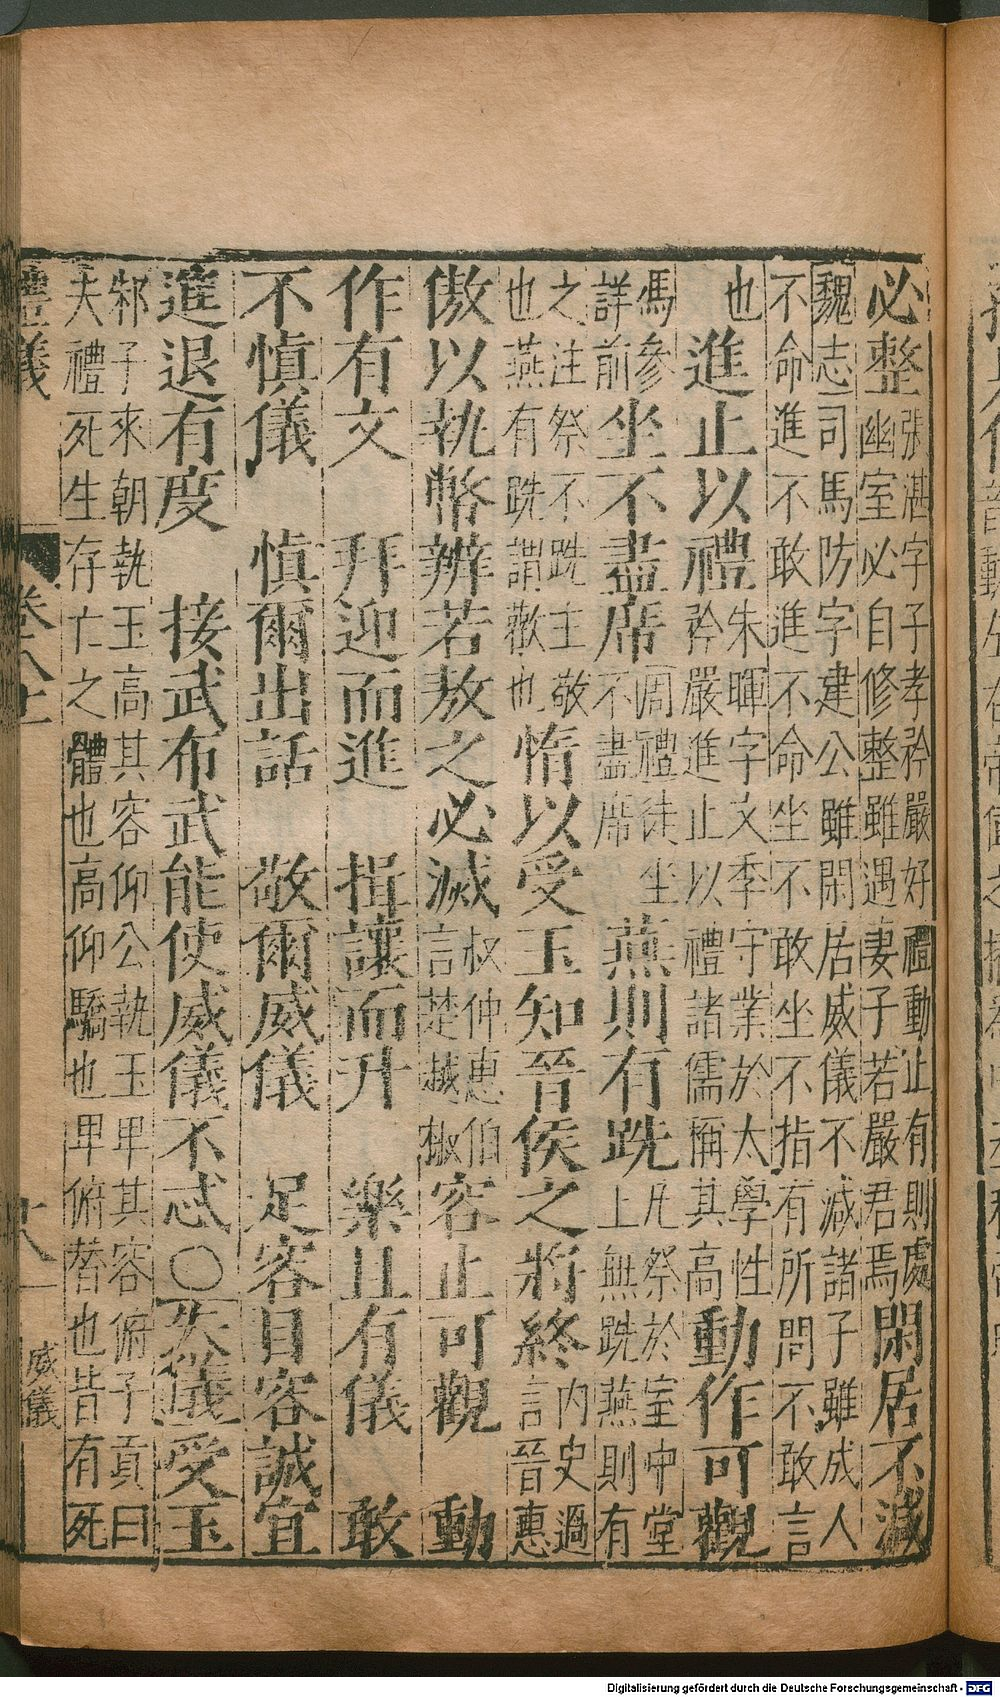 必整張湛字子孝矜嚴好禮動止有則處
幽室必自修整雖遇妻子若嚴君焉閑居不減
魏志司馬防字建公雖閑居威儀不減諸子雖成人
不命進不敢進不命坐不敢坐不指有所問不敢言
也 進止以禮朱暉字文季守業於太學性
矜嚴進止以禮諸儒稱其高動作可觀
馮參
詳前坐不盡席周禮徒坐
不盡席 燕則有跣凡祭於室中堂
上無跣燕則有
之注祭不跣主敬
也燕有跣謂歡也惰以受玉知晉侯之將終內史過
言晉惠
傲以執幣辨若敖之必滅叔仲惠伯
言楚越椒容止可觀 動
作有文 拜迎而進 揖讓而升 樂且有儀 敢
不慎儀 慎爾出話 敬爾威儀 足容目容誠宜
進退有度 接武布武能使威儀不忒○失儀受玉
邾子來朝執玉高其容仰公執玉卑其容俯子貢曰
夫禮死生存亡之體也高仰驕也卑俯替也皆有死
禮儀 卷八上 十八 威儀
Digitalisierung gefördert durch die Deutsche Forschungsgemeinschaft - DFG